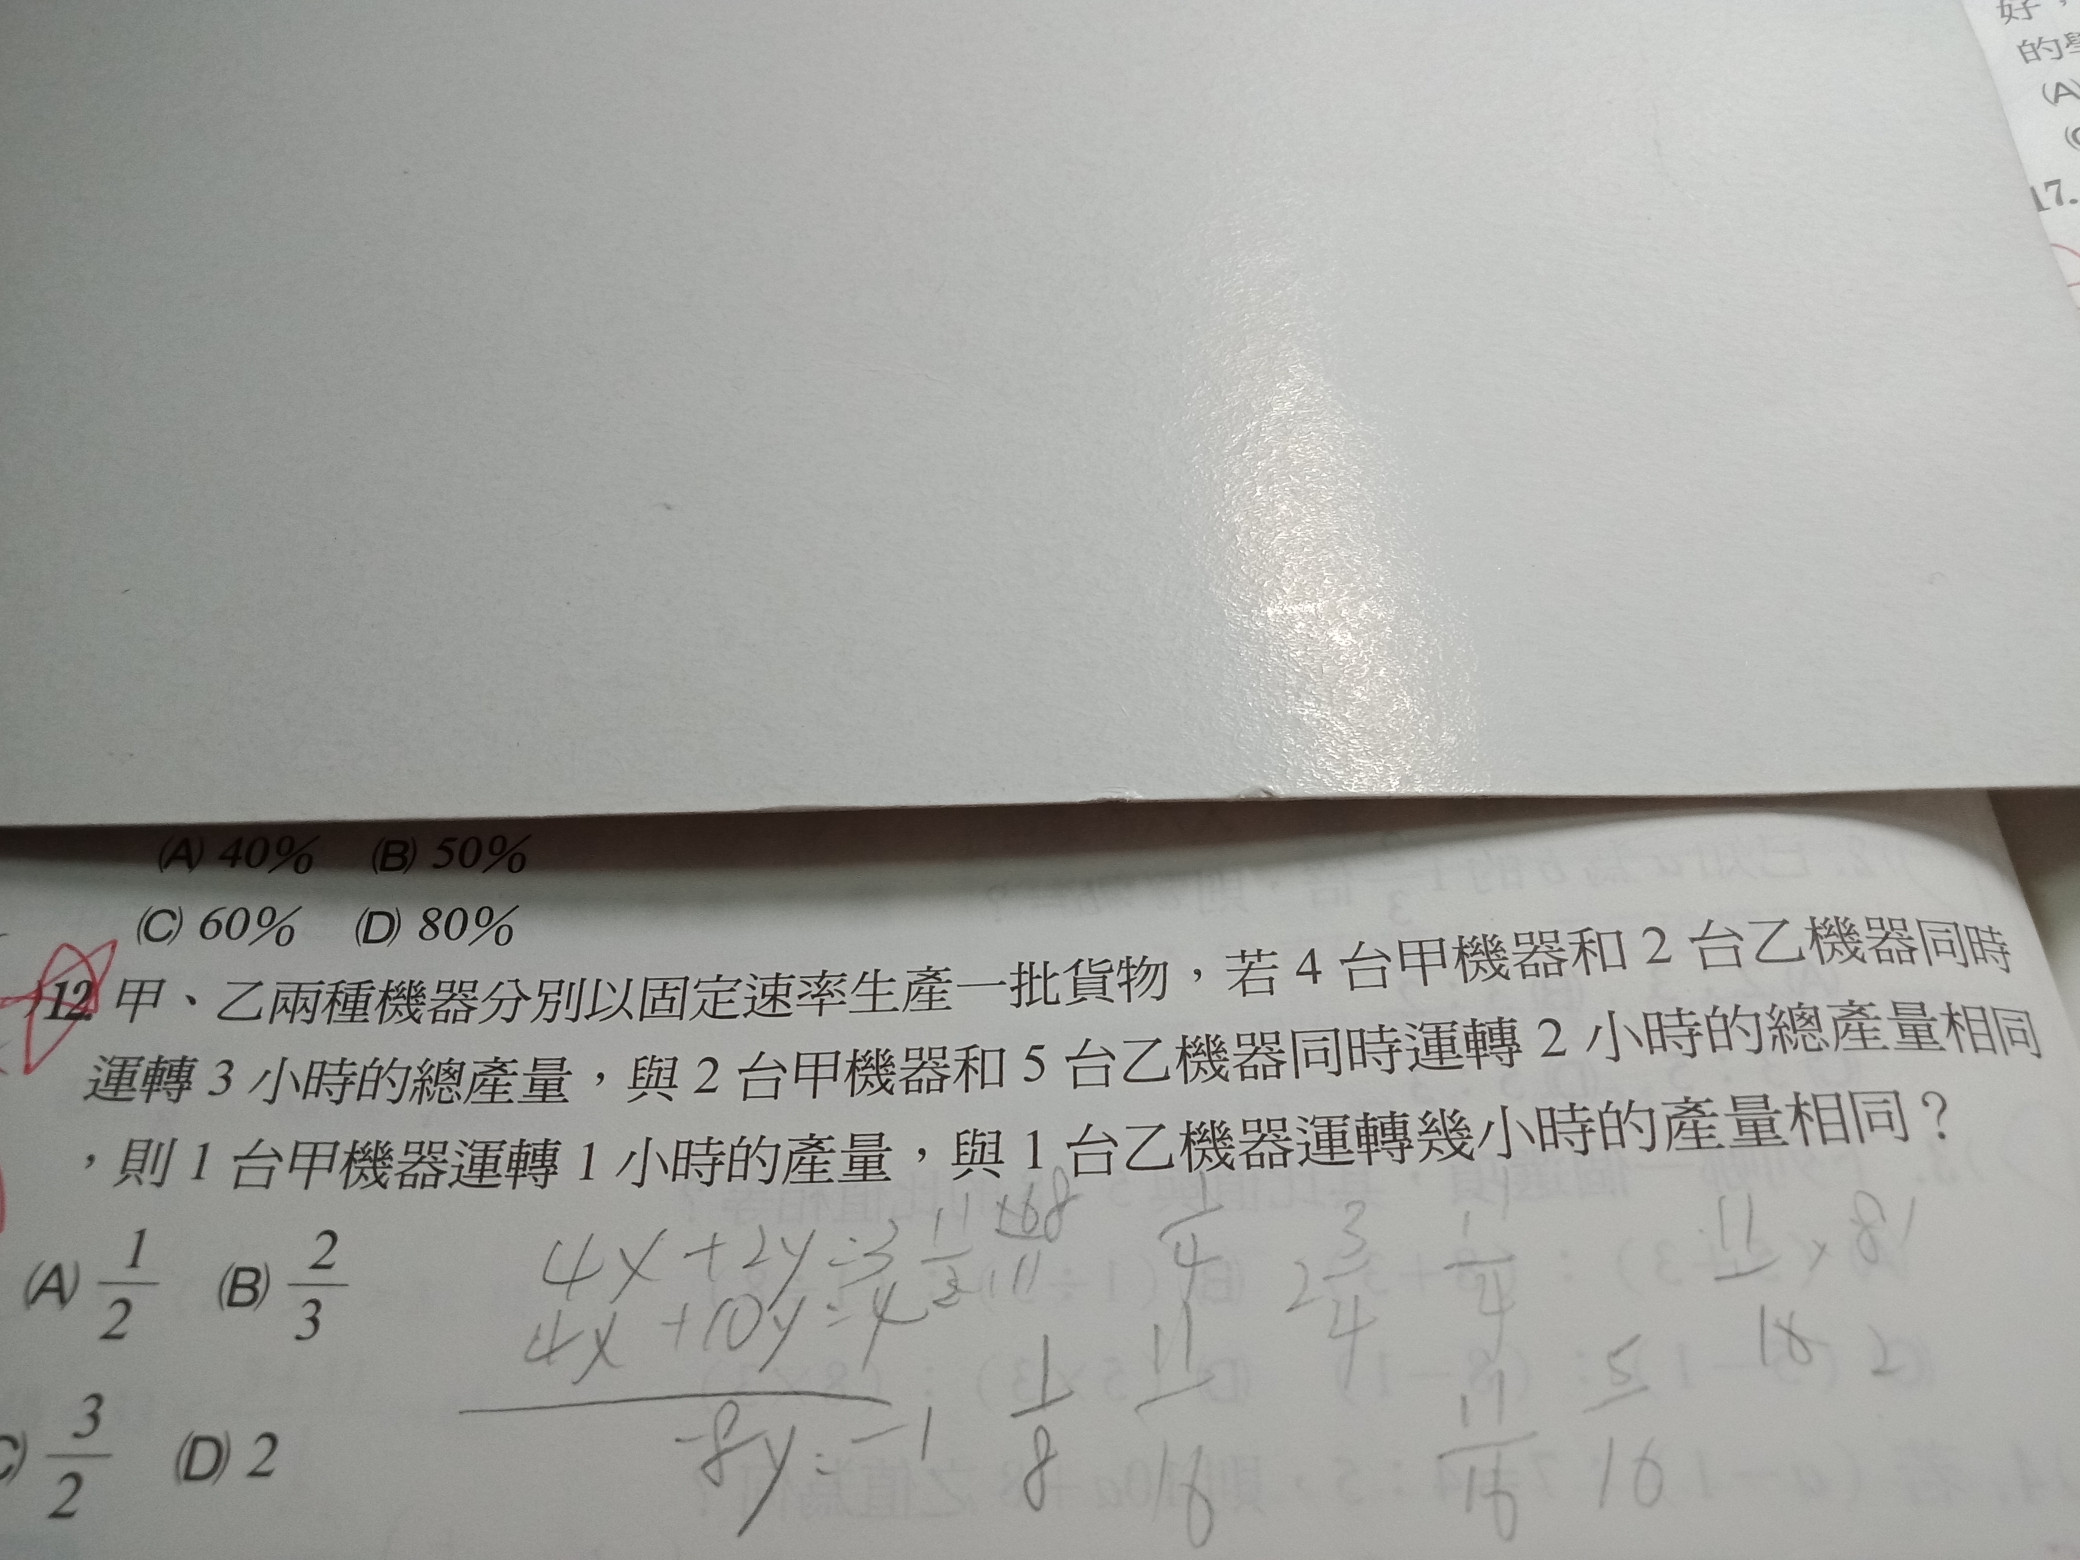 好，
的學
(A)
17.
(A) 40% (B) 50%
(C) 60% (D) 80%
12. 甲、乙兩種機器分別以固定速率生產一批貨物，若 4 台甲機器和 2 台乙機器同時
運轉 3 小時的總產量，與 2 台甲機器和 5 台乙機器同時運轉 2 小時的總產量相同
，則 1 台甲機器運轉 1 小時的產量，與 1 台乙機器運轉幾小時的產量相同？
(A) 1/2 (B) 2/3
(C) 3/2 (D) 2
4x+2y=3
4x+10y=4
-8y=-1
1/8
11/16
1/4
2 3/4
1/4
11/16
5/16